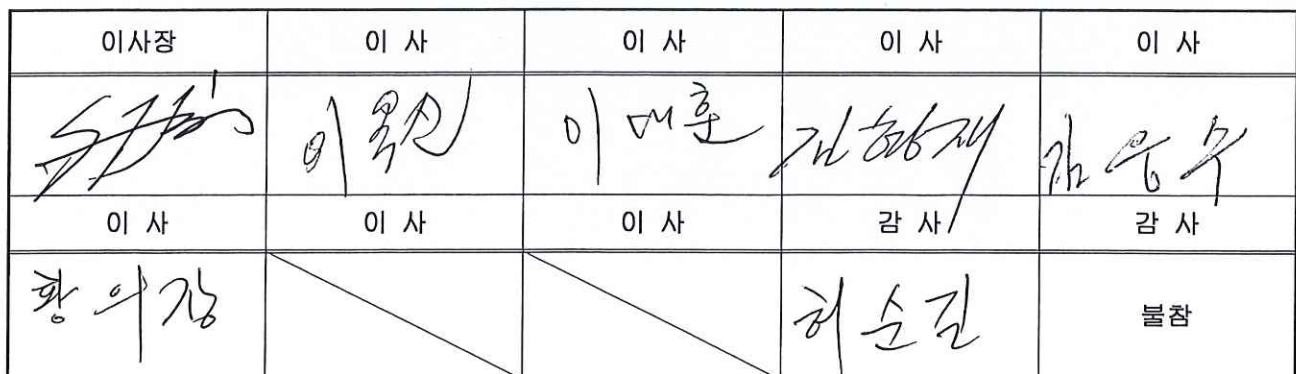 이사장 이 사 이 사 이 사 이 사
이 대훈 김형재 김응수
이 사 이 사 이 사 감 사 감 사
황의장 허순길 불참